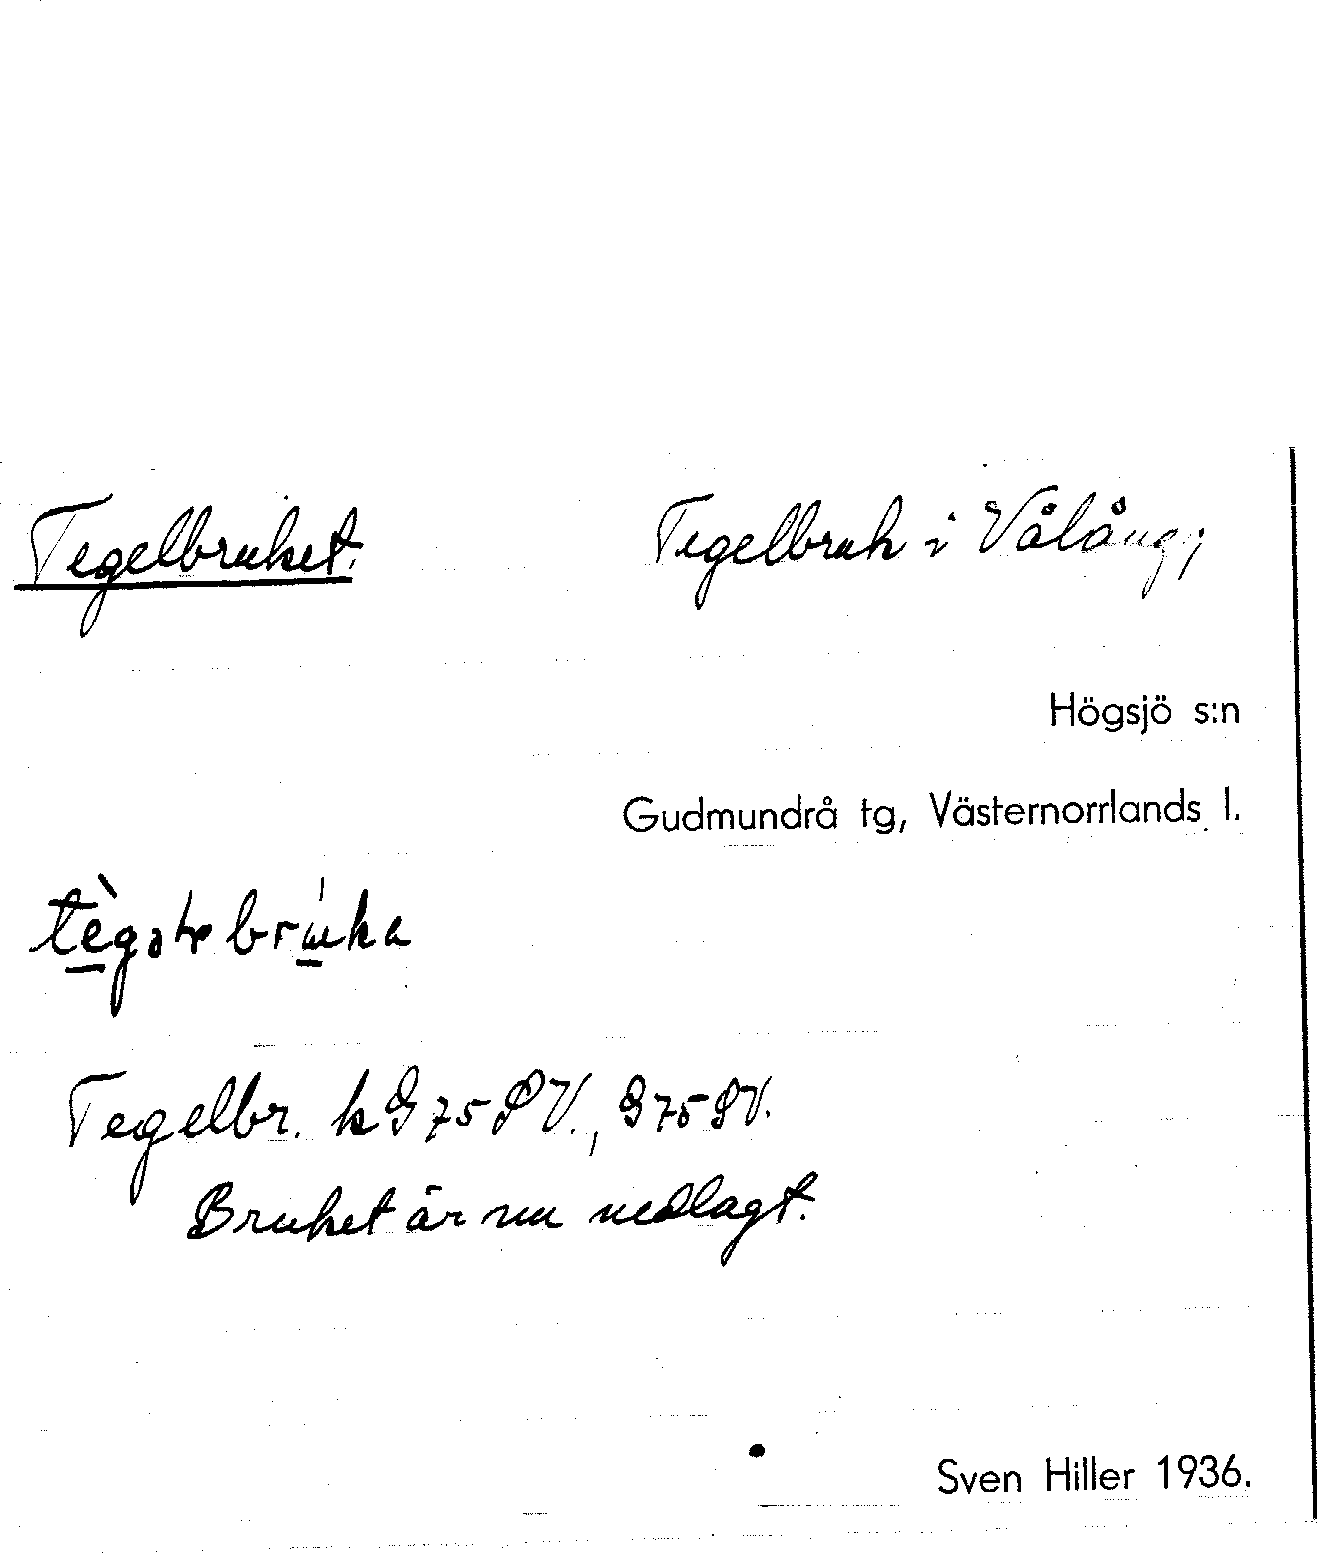 Tegelbruket. Tegelbruk i Vålång;
Högsjö s:n
Gudmundrå tg, Västernorrlands l.
Tegelbr. k G 75 PV., G 75 PV.
Bruket är nu nedlagt.
Sven Hiller 1936.